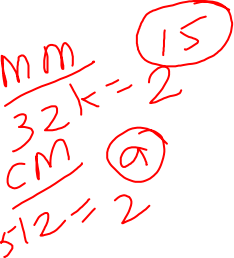 MM
32K = 2 15
CM
512 = 2 9